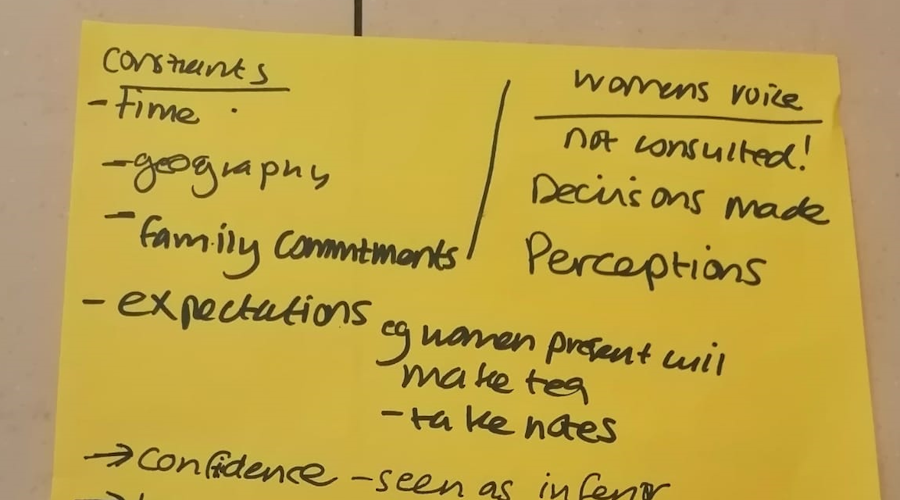 Constraints
- Time
- geography
- family commitments
- expectations eg women present will
make tea
- take notes
→ confidence - seen as inferior
womens voice
not consulted!
Decisions made
Perceptions